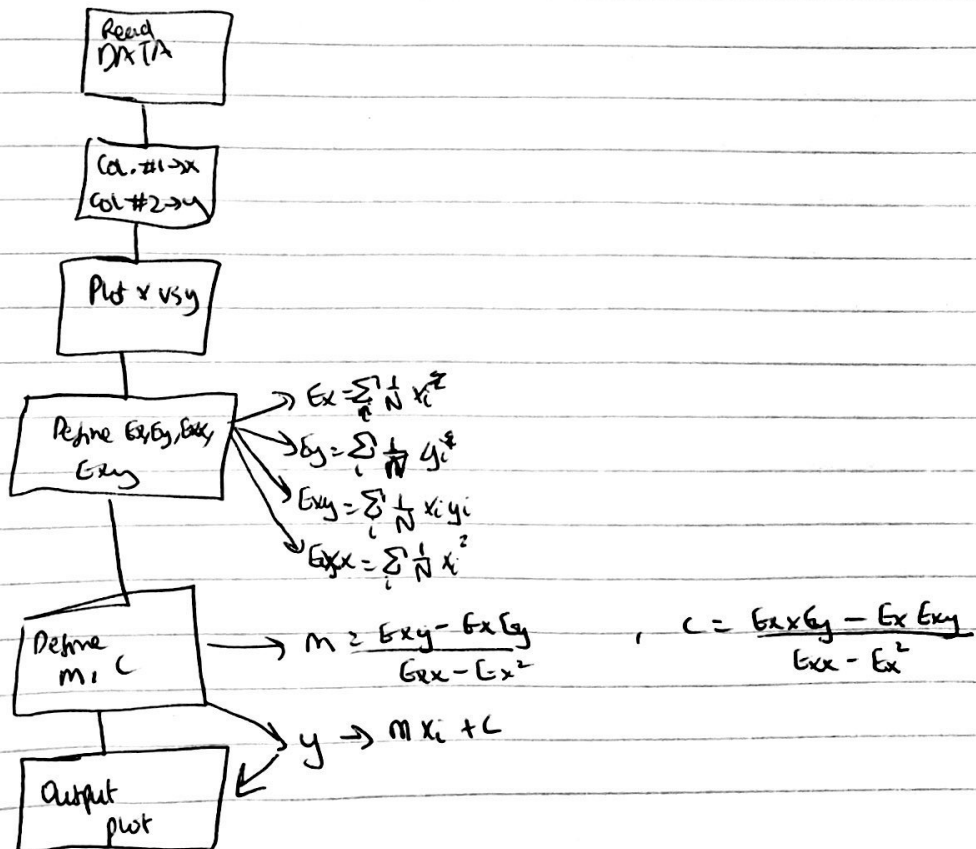 Read
DATA
Col. #1→x
Col #2→y
Plot x vs y
Define Ex, Ey, Exx,
Exy
Ex = ∑i 1/N xi
Ey = ∑i 1/N yi
Exy = ∑i 1/N xi yi
Exx = ∑i 1/N xi²
Define
m, c
m = (Exy - ExEy)/(Exx - Ex²) , c = (ExxEy - ExExy)/(Exx - Ex²)
y → mxi + c
Output
plot